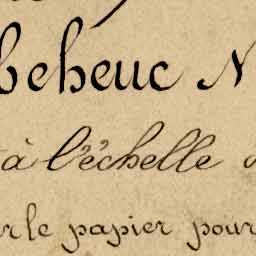 beheuc N
à l'échelle
rle papier pour